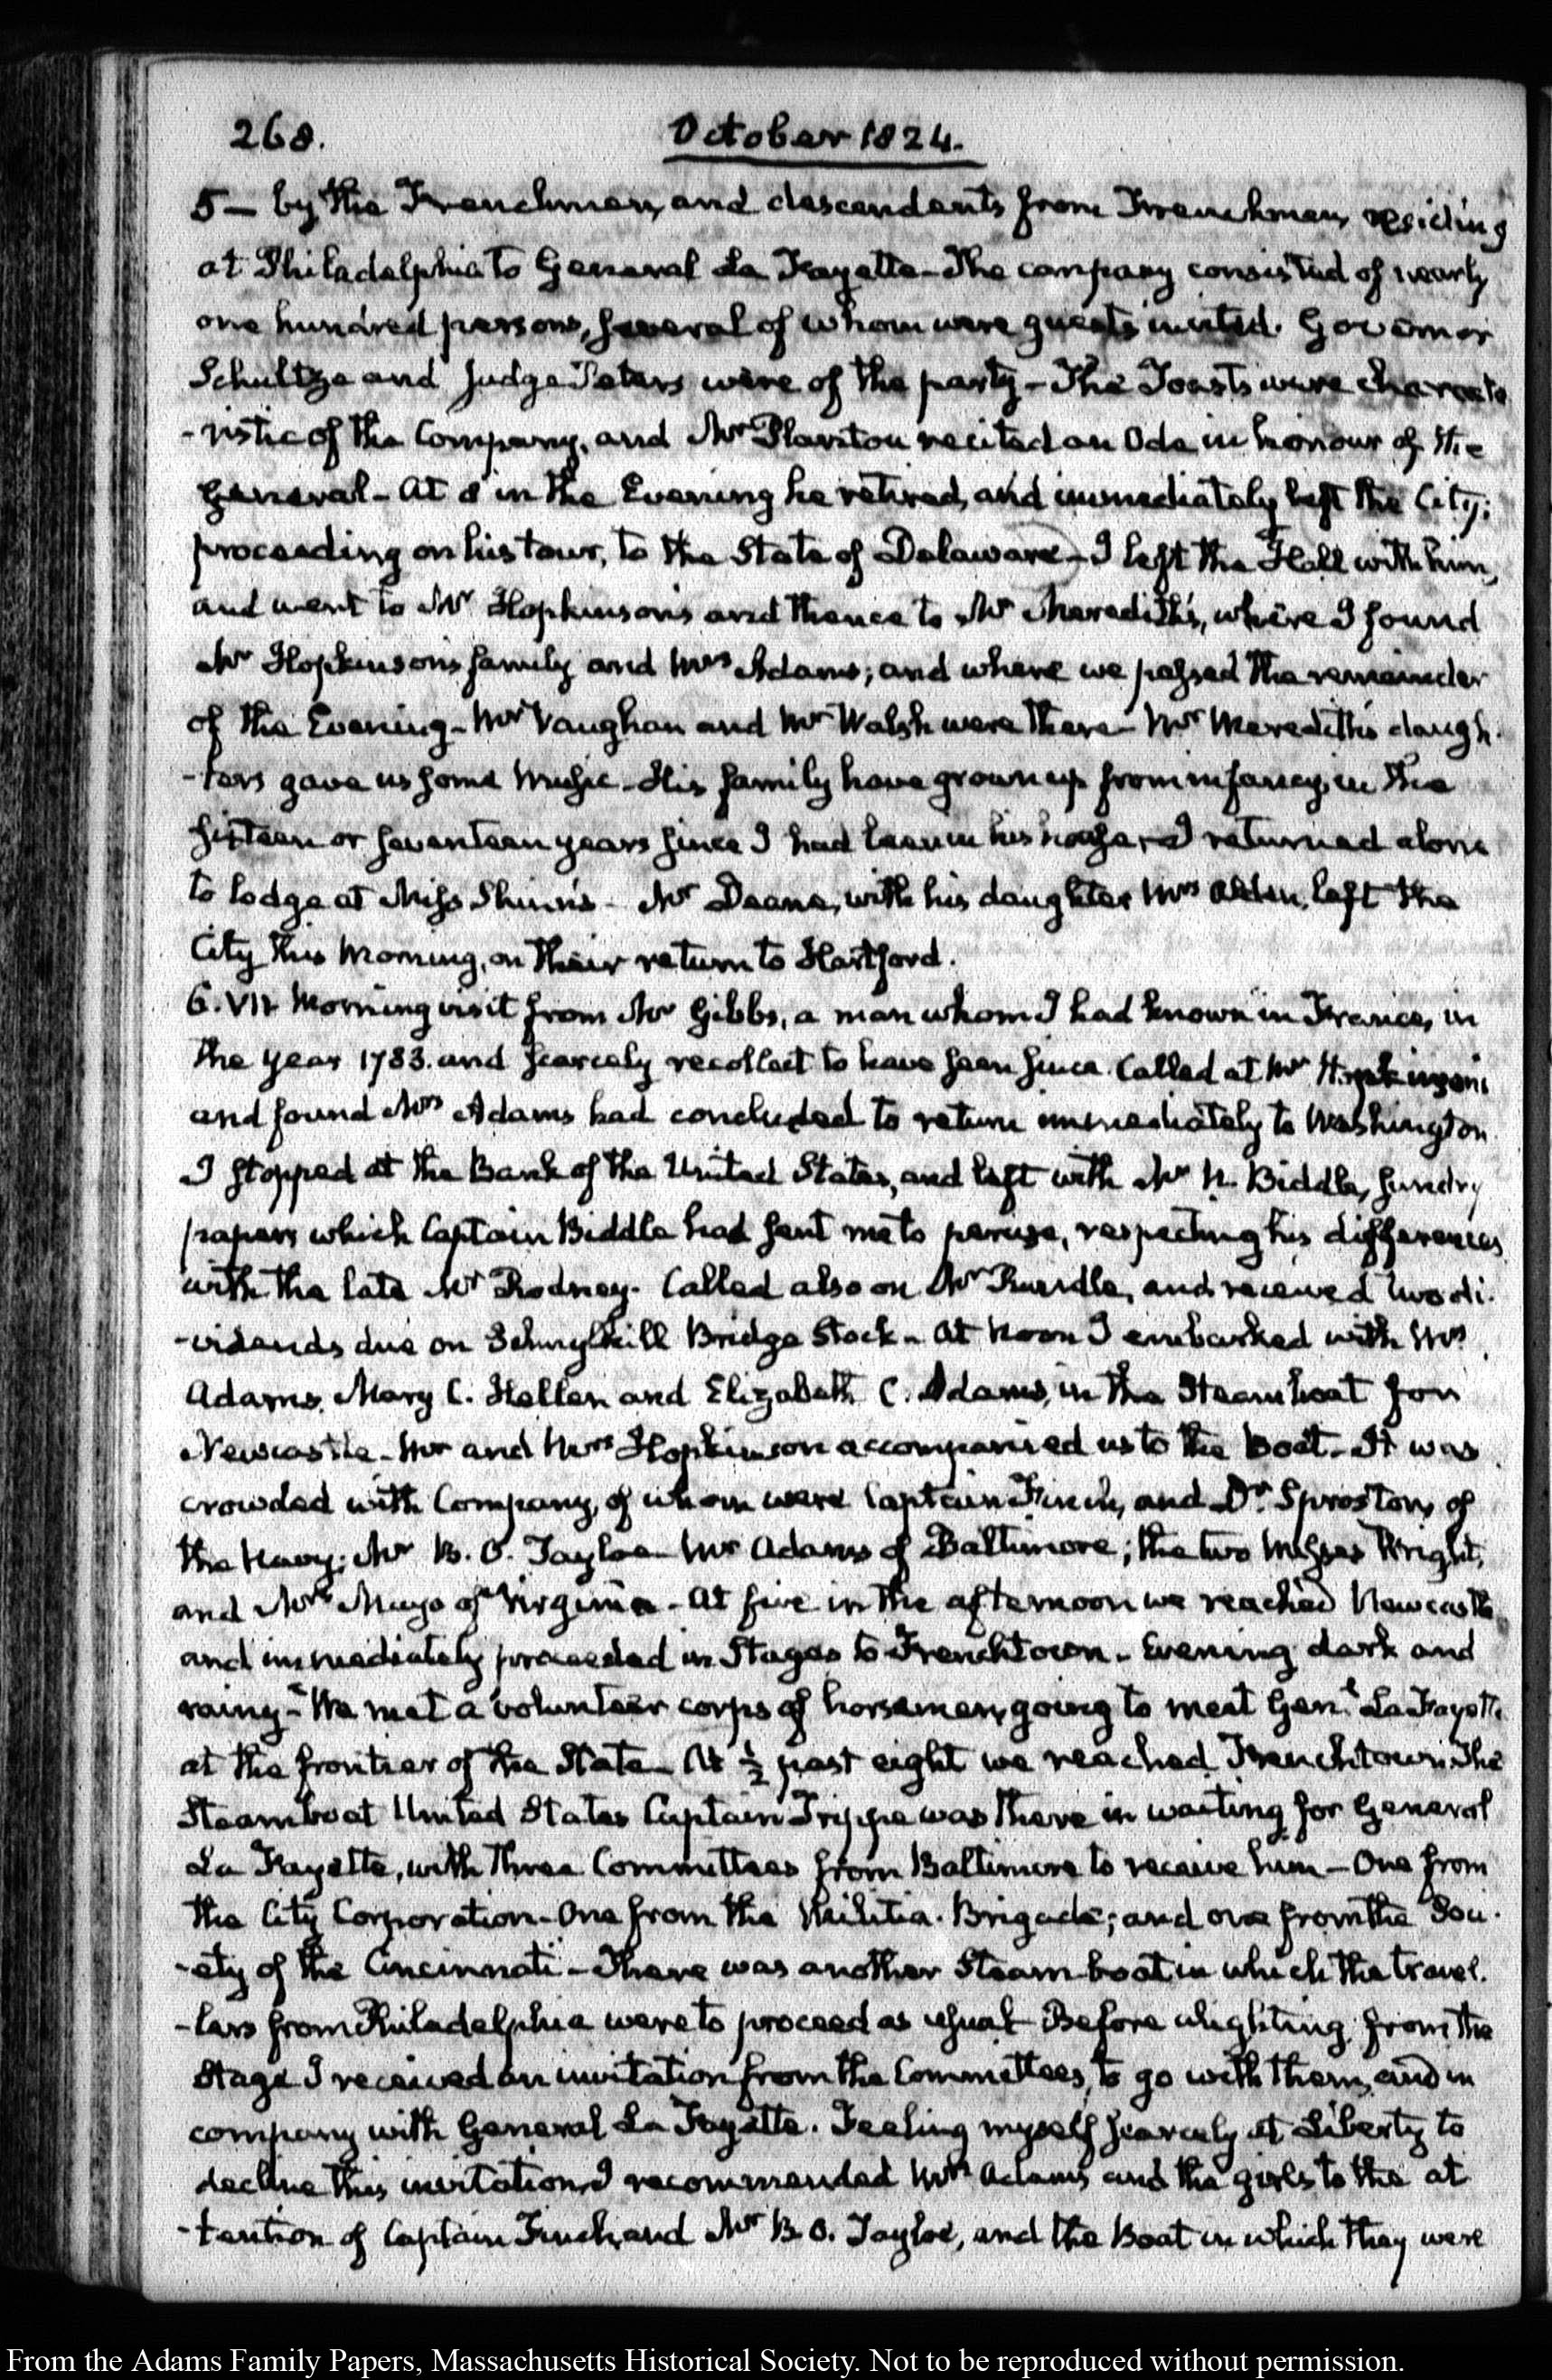 268.
October 1824.
5 — by the Frenchmen, and descendants from Frenchmen, residing
at Philadelphia to General La Fayette — The company consisted of nearly
one hundred persons, several of whom were guests invited. Governor
Schultze and Judge Peters were of the party — The Toasts were characte
-ristic of the Company, and Mr Planton recited an Ode in honour of the
General — At 8 in the Evening he retired, and immediately left the City;
proceeding on his tour, to the State of Delaware — I left the Hall with him,
and went to Mr Hopkinson's and thence to Mr Meredith's, where I found
Mr Hopkinson's family and Mrs Adams; and where we passed the remainder
of the Evening — Mr Vaughan and Mr Walsh were there — Mr Meredith's daugh-
-ters gave us some Music — His family have grown up from infancy, in the
sixteen or seventeen years since I had been in his house, I returned alone
to lodge at Miss Shinn's — Mr Deane, with his daughter Mrs Alden, left the
City this Morning, on their return to Hartford.
6. VII. Morning visit from Mr Gibbs, a man whom I had known in France, in
the year 1783. and scarcely recollect to have seen since. Called at Mr Hopkinson's
and found Mrs Adams had concluded to return immediately to Washington
I stopped at the Bank of the United States, and left with Mr N. Biddle, sundry
papers which Captain Biddle had sent me to peruse, respecting his differences
with the late Mr Rodney. Called also on Mr Rundle, and received two di-
-vidends due on Schuylkill Bridge Stock — At Noon I embarked with Mrs
Adams, Mary C. Hellen and Elizabeth C. Adams, in the Steam boat for
Newcastle — Mr and Mrs Hopkinson accompanied us to the Boat — It was
crowded with Company, of whom were Captain Finch, and Dr. Sproston, of
the Navy; Mr B. O. Tayloe — Mr Adams of Baltimore; the two Misses Wright,
and Mr Mayo of Virginia — At five in the afternoon we reached Newcastle
and immediately proceeded in Stages to Frenchtown — Evening dark and
rainy — We met a volunteer corps of horsemen, going to meet Genl. La Fayette
at the frontier of the State — At ½ past eight we reached Frenchtown. The
Steam boat United States Captain Trippe was there in waiting for General
La Fayette, with three Committees from Baltimore to receive him — One from
the City Corporation — One from the Militia. Brigade; and one from the Soci-
-ety of the Cincinnati — There was another Steam-boat in which the travel-
-lers from Philadelphia were to proceed as usual — Before alighting from the
Stage I received an invitation from the Committees, to go with them, and in
company with General La Fayette. Feeling myself scarcely at Liberty to
decline this invitation, I recommended Mrs Adams and the girls to the at
-tention of Captain Finch, and Mr B. O. Tayloe, and the Boat in which they were
From the Adams Family Papers, Massachusetts Historical Society. Not to be reproduced without permission.